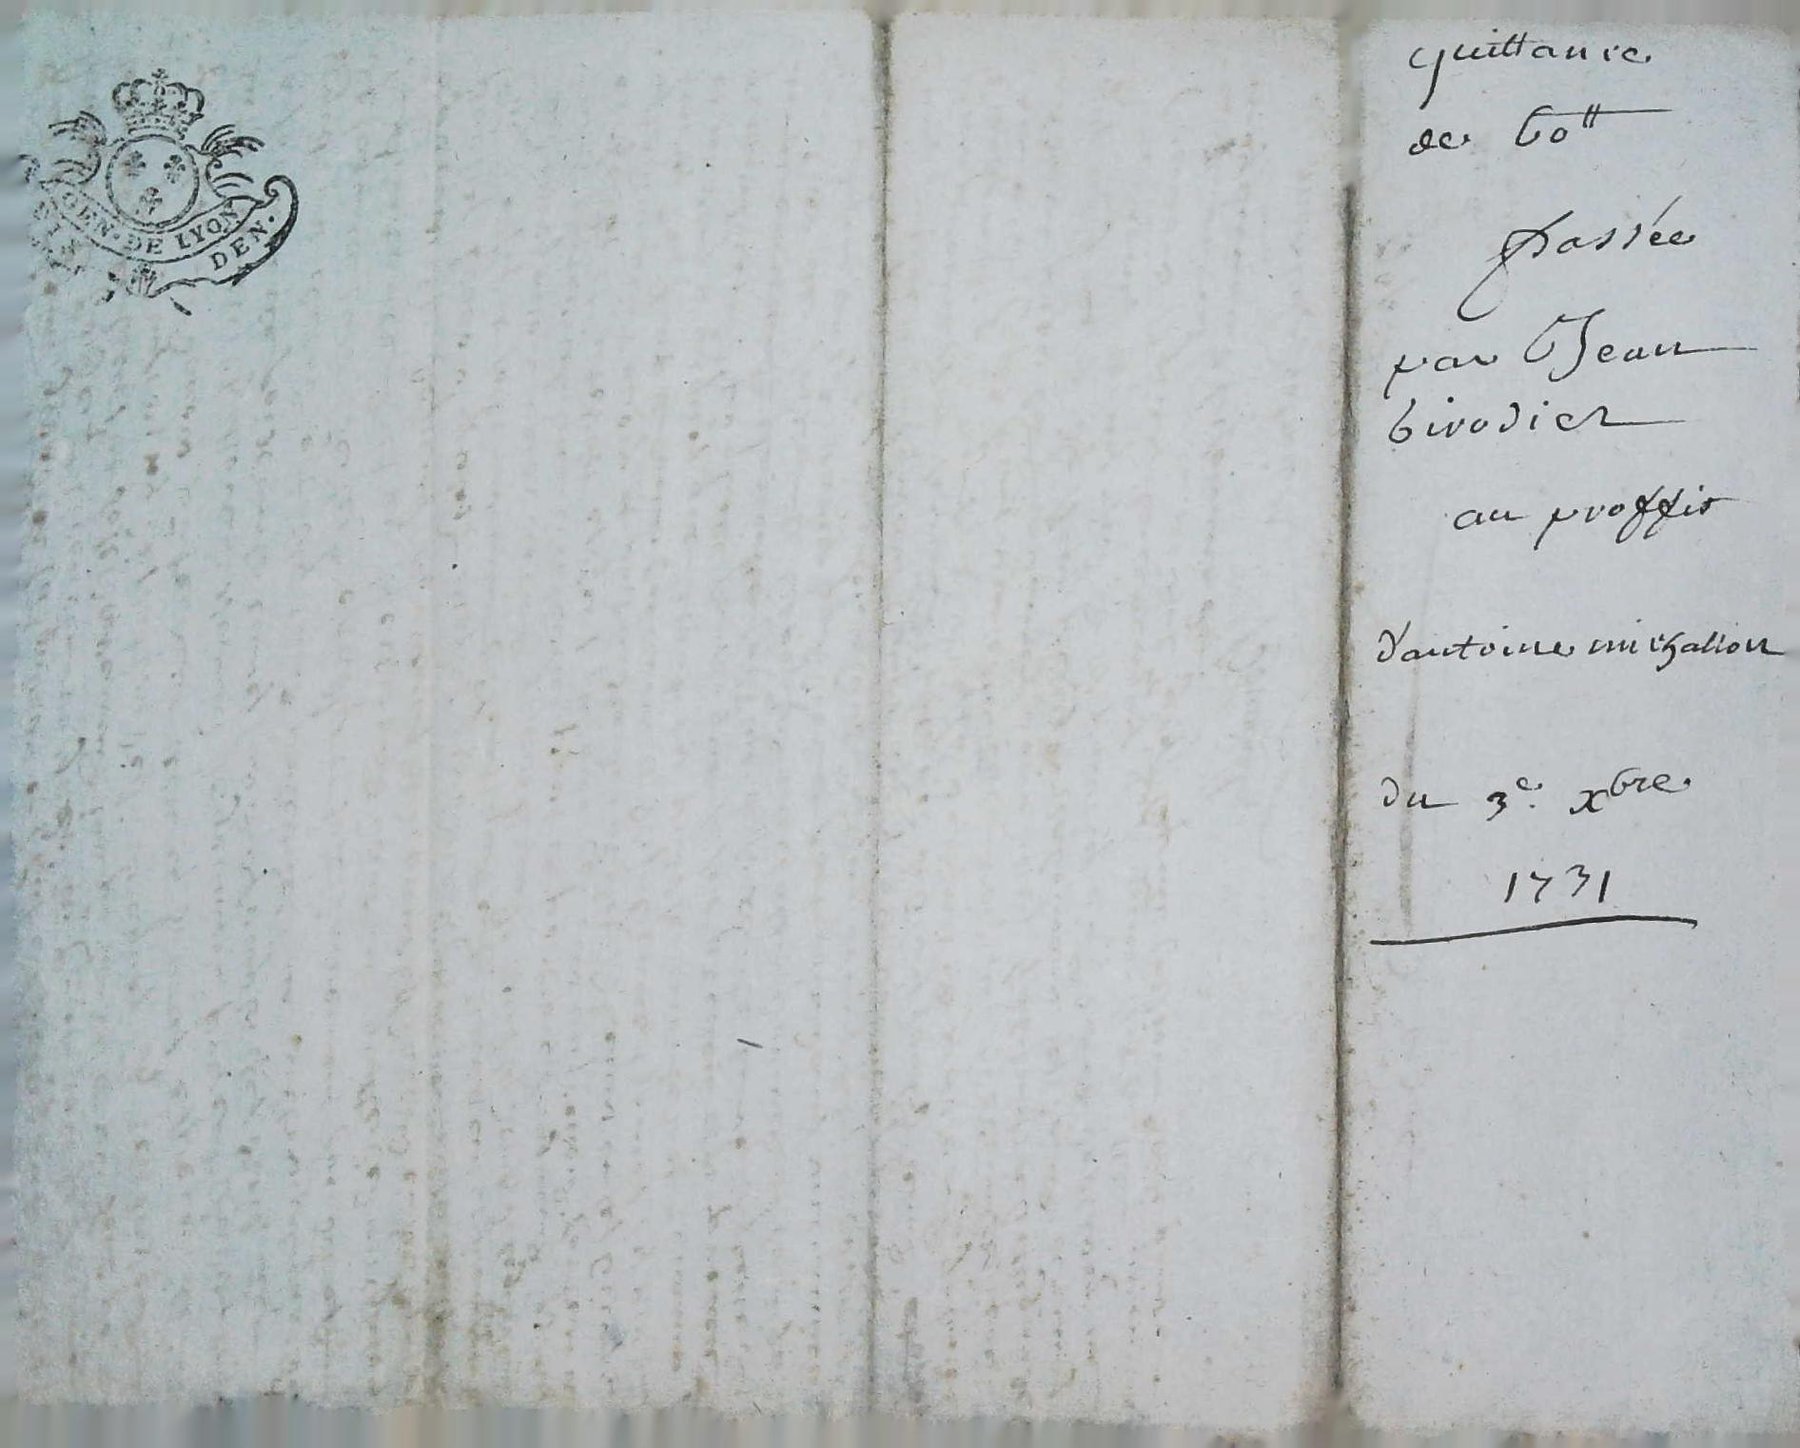 GEN·DE LYON
DEN·
quittance
de 60tt
passée
par Jean
birodier
au proffit
d'antoine michallon
du 3e. xbre
1731